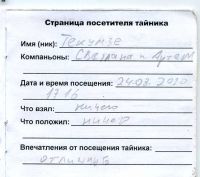 Страница посетителя тайника
Имя (ник): Текумзе
Компаньоны: Светлана и Артем
Дата и время посещения: 24.03.2020
17 16
Что взял: ничего
Что положил: ничего
Впечатления от посещения тайника:
отлично